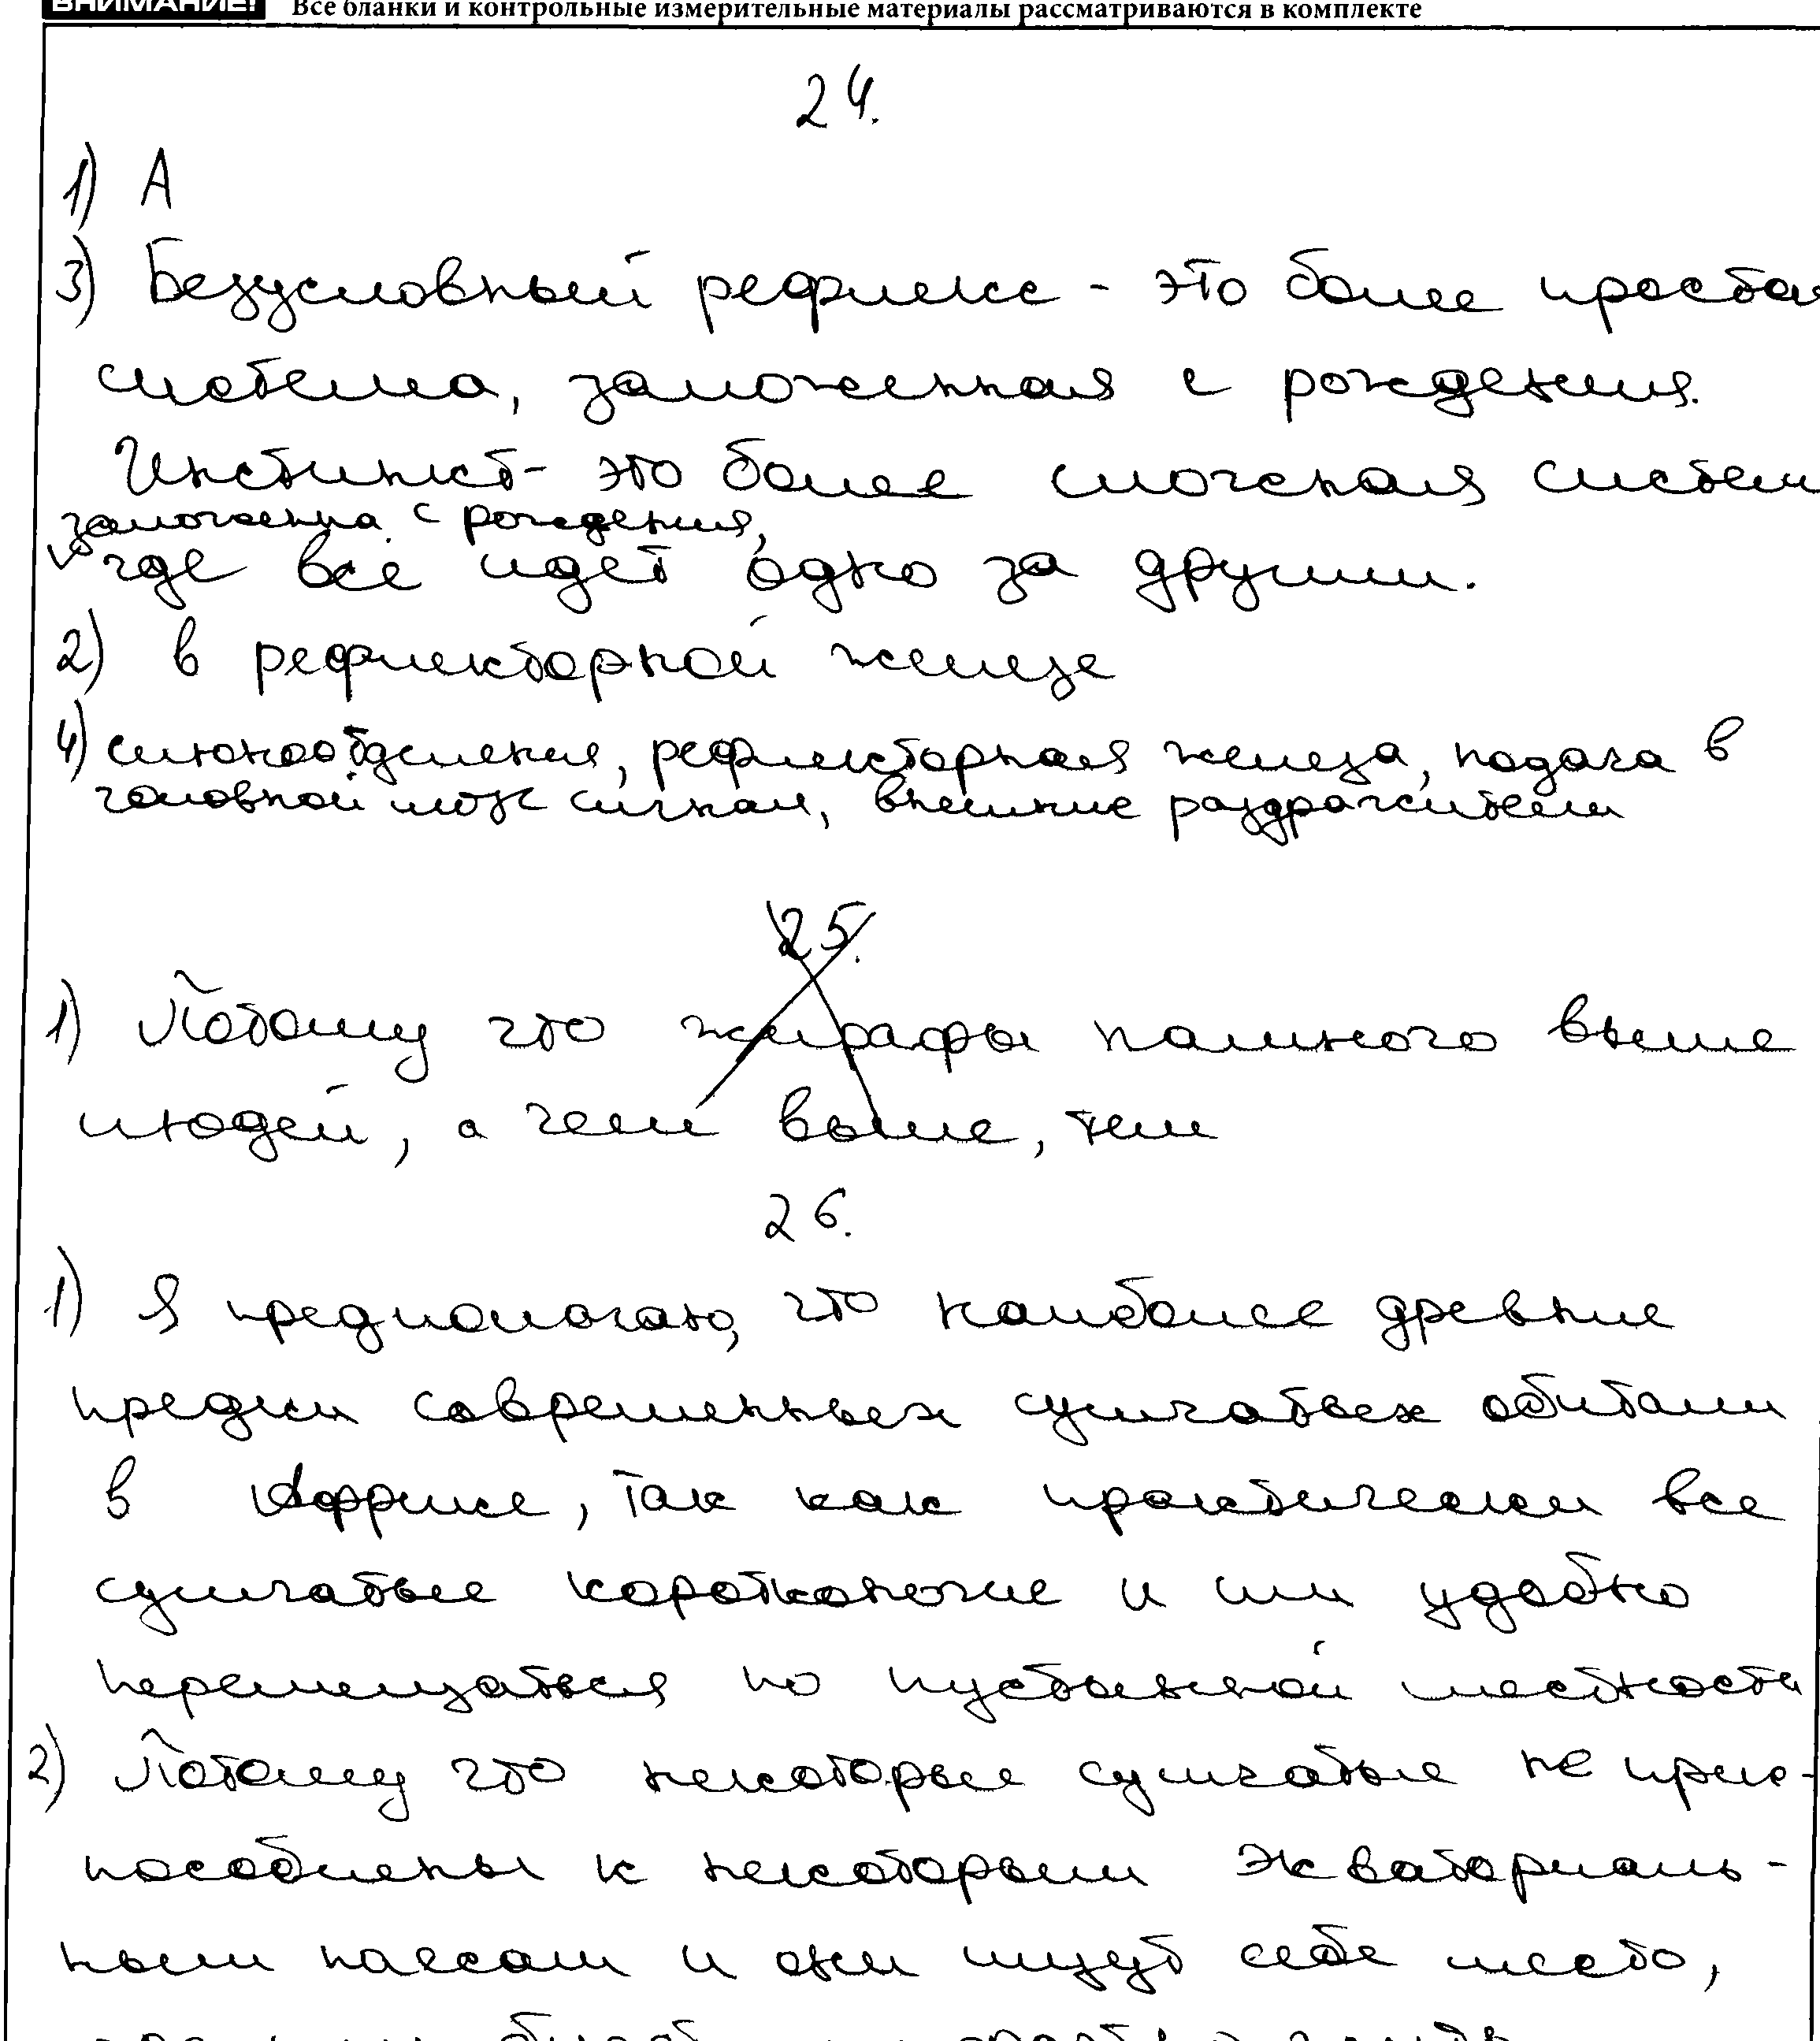 ВНИМАНИЕ! Все бланки и контрольные измерительные материалы рассматриваются в комплекте
24.
1) А
3) Безусловный рефлекс - это более простая
система, заложенная с рождения.
Инстинкт - это более сложная систем
заложенна с рождения,
где всё идёт одно за другим.
2) в рефлекторной железе
4) слюноотделения, рефлекторная железа, подача в
головной мозг сигнал, внешние раздражители
25.
1) Потому что жирафы намного выше
людей, а чем выше, тем
26.
1) Я предпологаю, что наиболее древние
предки современных сумчатых обитали
в Африке, так как практически все
сумчатые коротконогие и им удобно
перемещаться по пустынной местности
2) Потому что некоторые сумчатые не прис-
пособлены к некоторым экваториаль-
ным поясам и они ищут себе место,